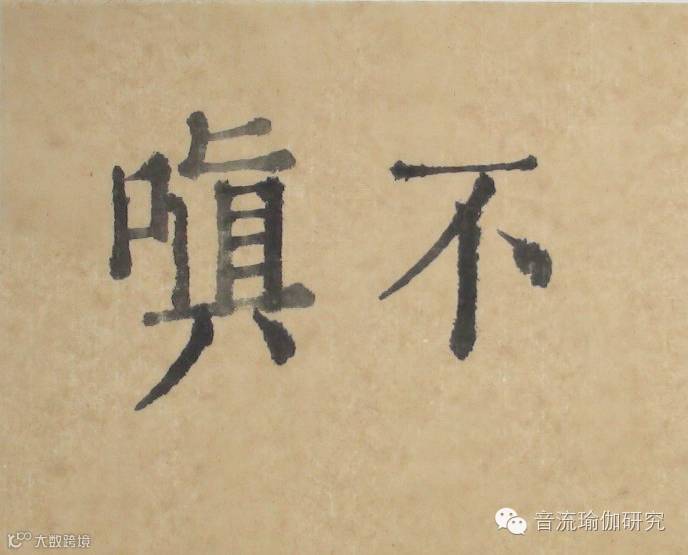 不嗔
音流瑜伽研究
大数跨境